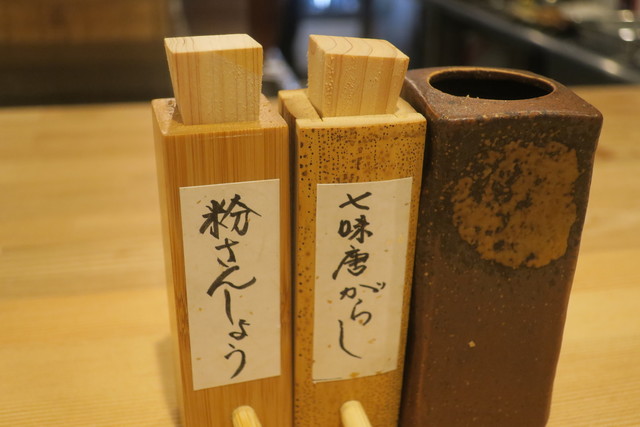 粉さんしょう
七味唐がらし